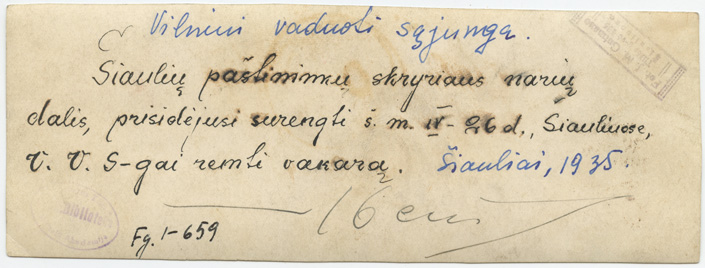 Vilniui vaduoti sąjunga.
Šiaulių paštininkų skyriaus narių
dalis, prisidėjusi surengti š. m. IV-26 d., Šiauliuose,
V. V. S-gai remti vakarą. Šiauliai, 1935.
16 cm
Fg. 1-659